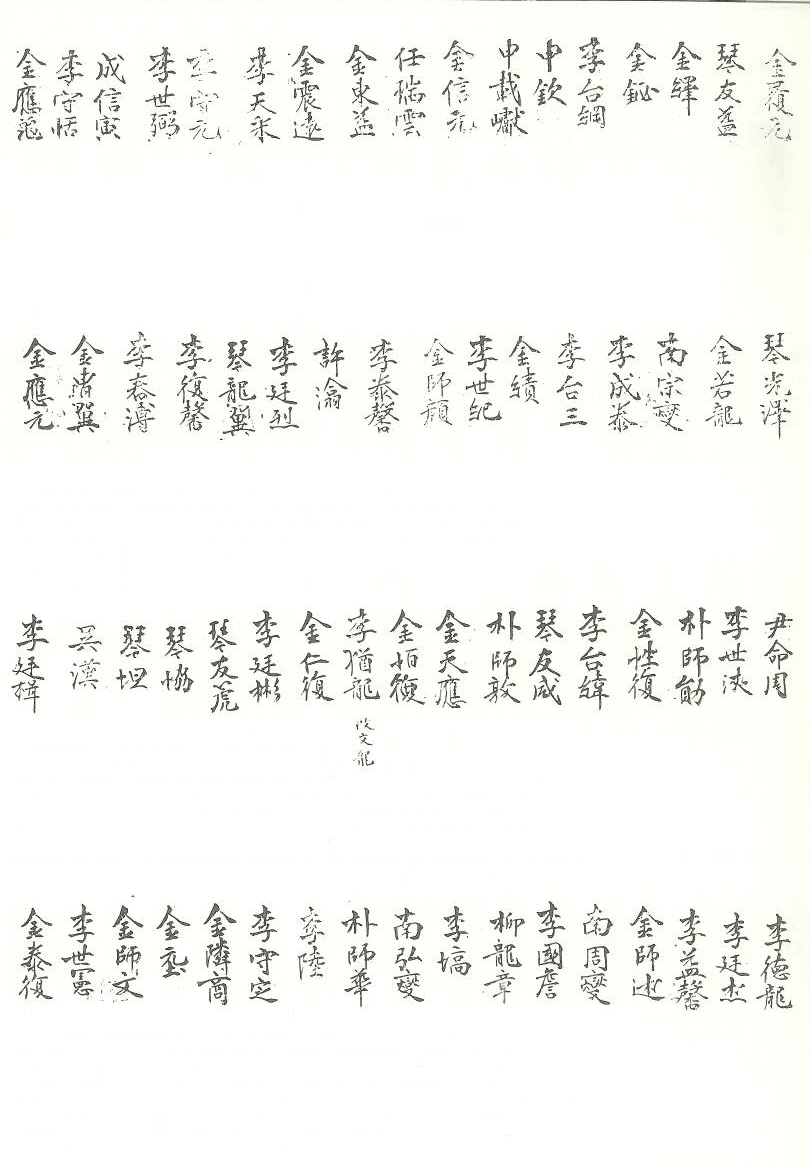 金履元
琴友益
金繹
金鉍
李台綱
申欽
申載巘
金信元
任瑞雲
金東益
金震遠
李天采
李守元
李世弼
成信寅
李守恬
金應龜
琴光澤
金若龍
南宗燮
李成泰
李台三
金績
李世紀
金師顔
李泰馨
許滃
李廷烈
琴龍翼
李復馨
李春溥
金濟翼
金應元
尹命周
李世浹
朴師勛
金性復
李台緯
琴友成
朴師敦
金天應
金恒復
李猶龍 改文龍
金仁復
李廷彬
琴友虎
琴恊
琴坦
吳漢
李廷楫
李德龍
李廷杰
李益馨
金師述
南周燮
李國詹
柳龍章
李塙
南弘燮
朴師華
李陸
李守定
金隣商
金㙜
金師文
李世憲
金泰復